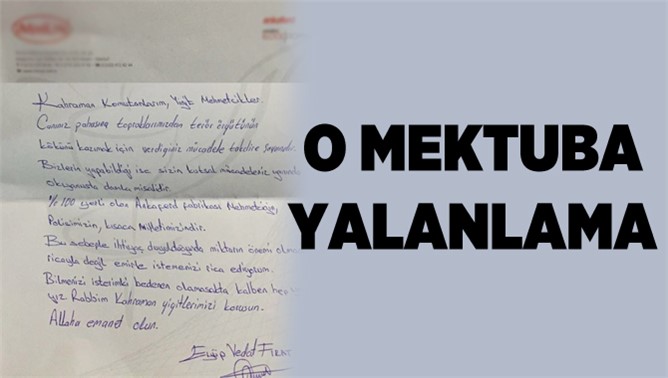 Kahraman Komutanlarım, Yiğit Mehmetcikler.
Canınız pahasına topraklarımızdan terör örgütünün
kökünü kazımak için verdiğiniz mücadele takdire
Bizlerin yapabildiği ise sizin kutsal mücadeleniz yanında
okyanusta damla misalidir.
% 100 yerli olan fabrikası
Polisimizin, kısaca Milletimizindir.
Bu sebeple ihtiyaç duyulduğunda miktarın önemi
ricayla değil emirle istemenizi rica ediyorum.
Bilmenizi isterimki bedenen olamasakta kalben
Rabbim Kahraman yiğitlerimizi korusun.
Allaha emanet olun.
Eyüp Vedat FIRAT
O MEKTUBA
YALANLAMA